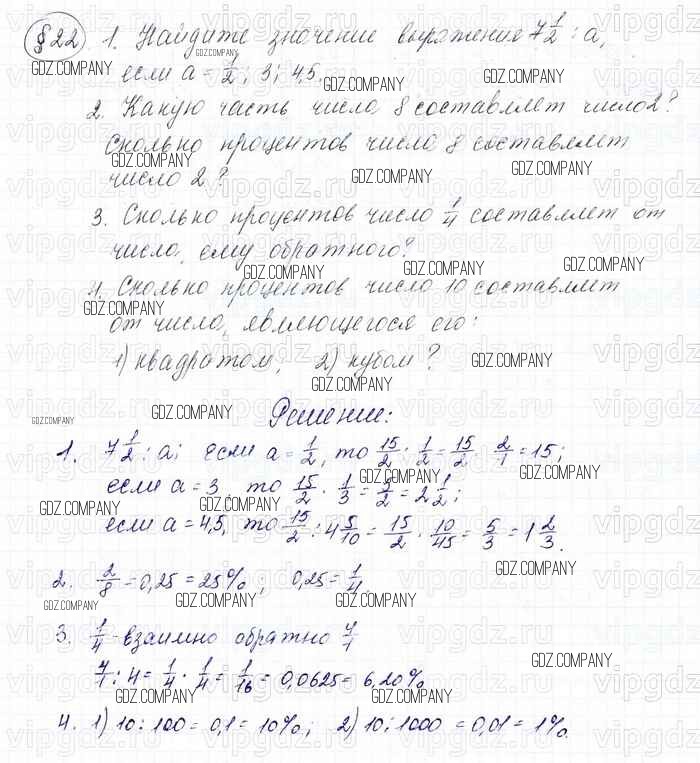 §22 1. Найдите значение выражения 7 1/2 : a,
если a = 1/2; 3; 4,5.
2. Какую часть числа 8 составляет число 2?
Сколько процентов числа 8 составляет
число 2?
3. Сколько процентов число 1/4 составляет от
числа, ему обратного?
4. Сколько процентов число 10 составляет
от числа, являющегося его:
1) квадратом, 2) кубом?
Решение:
1. 7 1/2 : a; если a = 1/2, то 15/2 : 1/2 = 15/2 · 2/1 = 15;
если a = 3, то 15/2 · 1/3 = 5/2 = 2 1/2;
если a = 4,5, то 15/2 : 4 5/10 = 15/2 · 10/45 = 5/3 = 1 2/3.
2. 2/8 = 0,25 = 25%; 0,25 = 1/4.
3. 1/4 - взаимно обратно 4/1
1/4 : 4 = 1/4 · 1/4 = 1/16 = 0,0625 = 6,20%
4. 1) 10 : 100 = 0,1 = 10%; 2) 10 : 1000 = 0,01 = 1%.
GDZ.COMPANY
vipgdz.ru